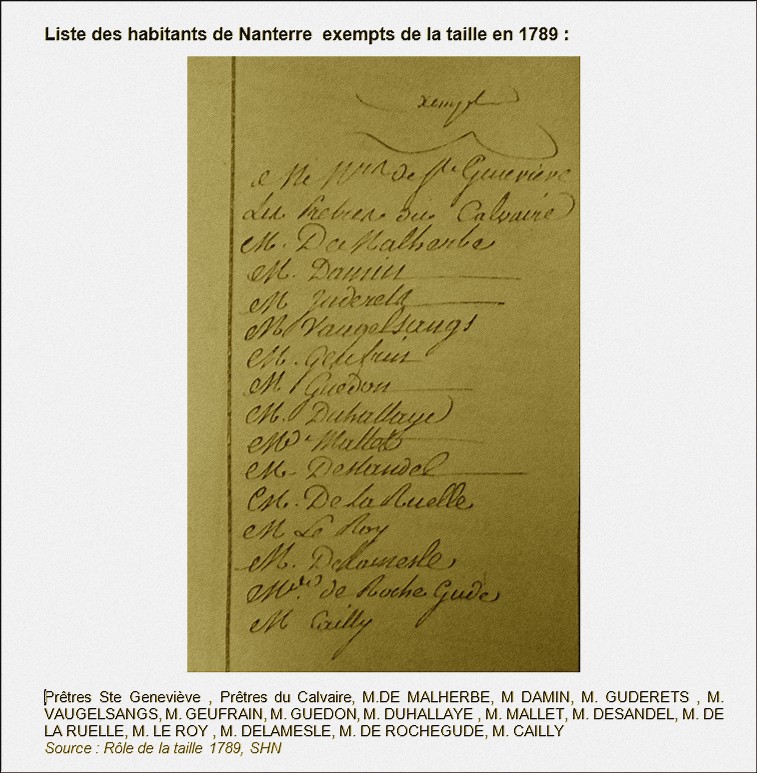 Liste des habitants de Nanterre exempts de la taille en 1789 :
xempts
de Ste Genevieve
Les Pretres du Calvaire
M. De Malherbe
M. Damin
M Guderets
M Vaugelsangs
M. Geufrin
M Guedon
M. Duhallaye
Mallet
M. Desandel
M. De La Ruelle
M Le Roy
M. Delamesle
de Roche Gude
M Cailly
Prêtres Ste Geneviève , Prêtres du Calvaire, M.DE MALHERBE, M DAMIN, M. GUDERETS , M.
VAUGELSANGS, M. GEUFRAIN, M. GUEDON, M. DUHALLAYE , M. MALLET, M. DESANDEL, M. DE
LA RUELLE, M. LE ROY , M. DELAMESLE, M. DE ROCHEGUDE, M. CAILLY
Source : Rôle de la taille 1789, SHN